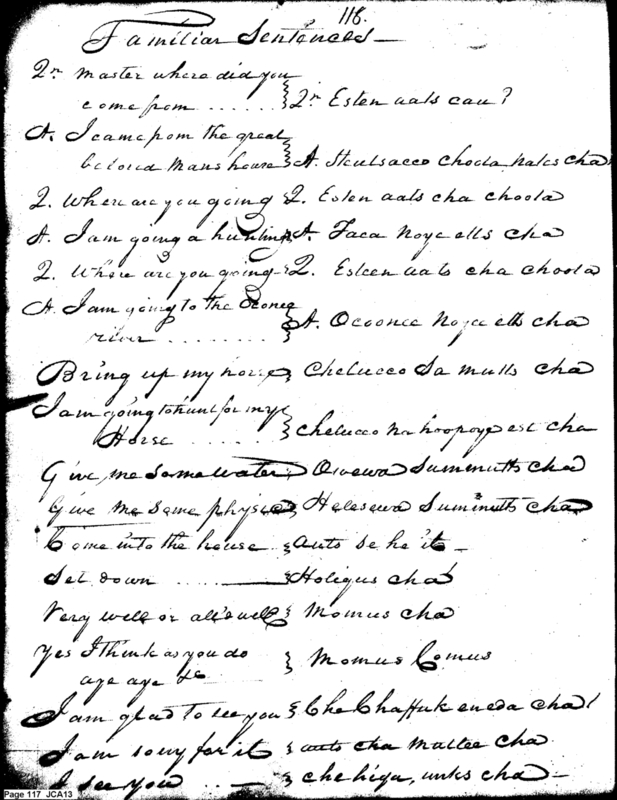 118.
Familiar Sentences—
Qn. Master where did you
come from ...... } Qn Esten aats cau?
A. I came from the great
beloved mans house } A. Stulsacco choola nales cha
Q. Where are you going } Q. Esten aats cha choola
A. I am going a hunting } A. Faca Noye ells cha
Q. Where are you going } Q. Esteen aats cha choola
A. I am going to the Oconee
river ........ } A. Ocoonee Noya ells cha
Bring up my horse } Chelucco Sa mutts cha
I am going to hunt for my
Horse ...... } Chelucco na hoopoye est cha
Give, me some water } Owewa Summutts cha
Give me some physic } Helesewa Summutts cha
Come into the house } auts se he it —
Set down ...... } Holigus cha
Very well or all's well } Momus cha
Yes I think as you do
aye aye &c } Momus Comus
I am glad to see you } Che Chaffuk eneda cha!
I am sorry for it } auts cha mattee cha
I see you .. — } che higa, unks cha —
Page 117 JCA13